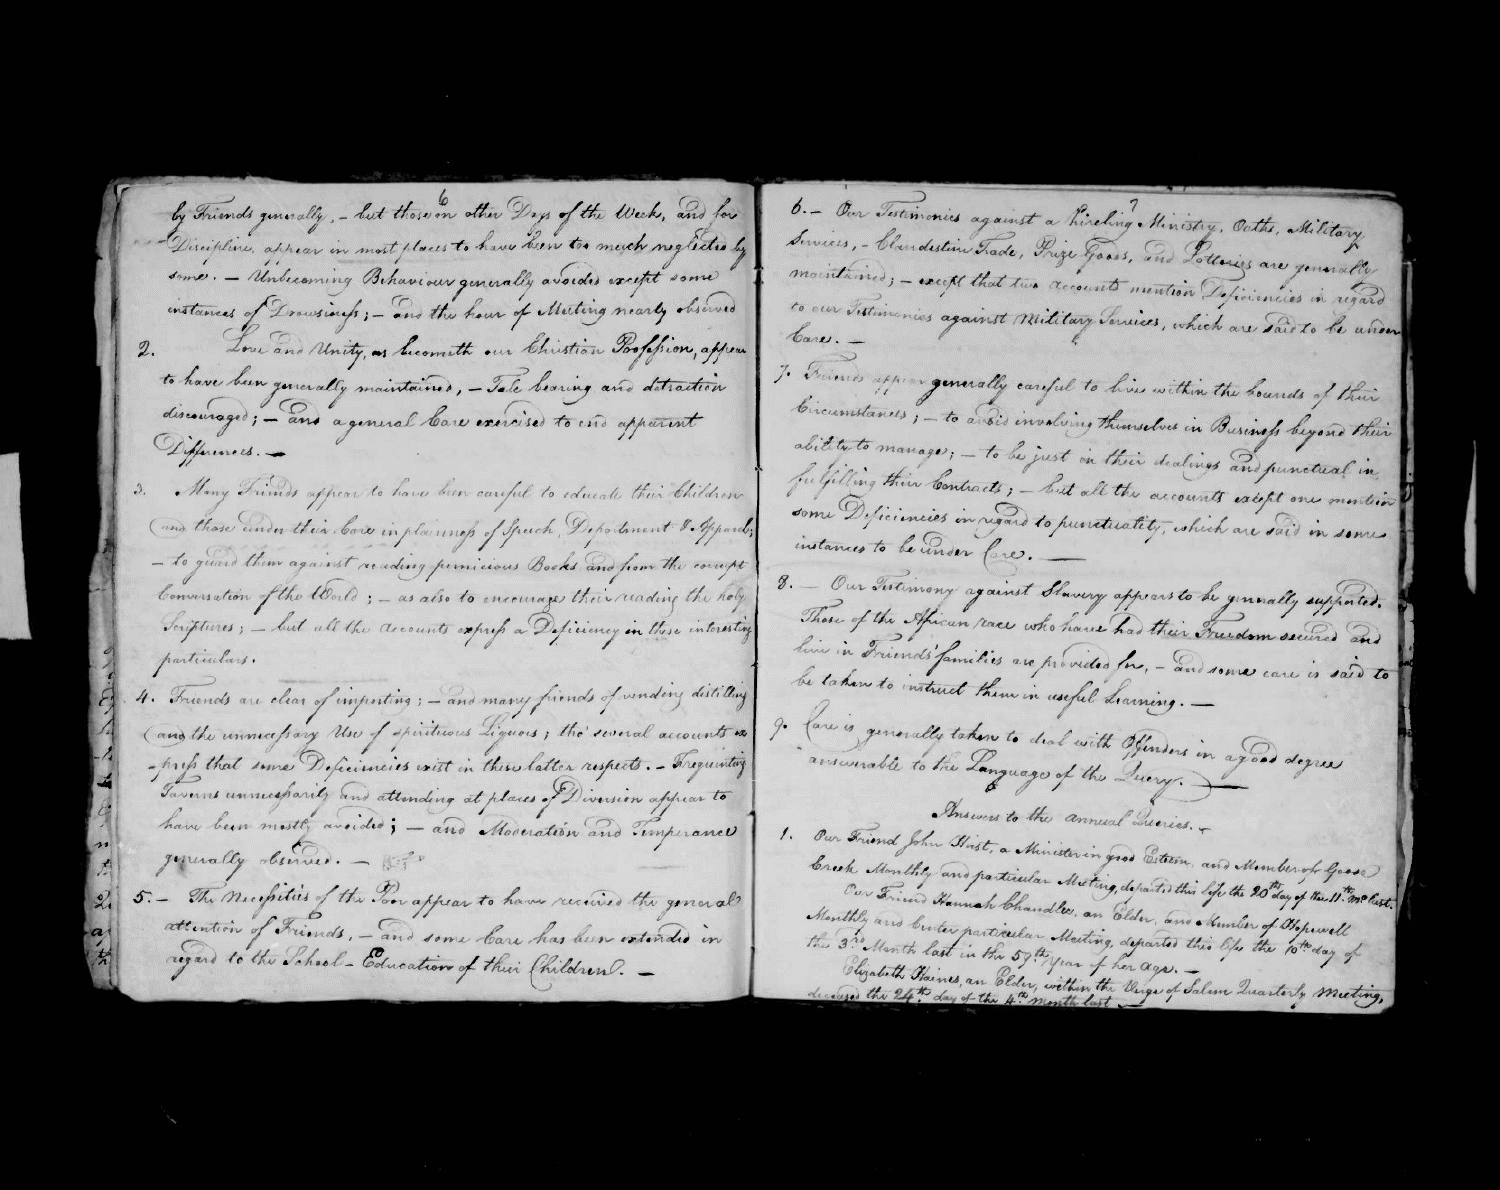 6
by Friends generally, – but those on other Days of the Week, and for
Discipline, appear in most places to have been too much neglected by
some. – Unbecoming Behaviour generally avoided except some
instances of Drowsiness; – and the hour of Meeting nearly observed
2. Love and Unity, as becometh our Christian Profession, appear
to have been generally maintained, – Tale bearing and detraction
discouraged; – and a general Care exercised to end apparent
Differences. –
3. Many Friends appear to have been careful to educate their Children
and those under their Care in plainness of Speech, Deportment & Apparel;
– to guard them against reading pernicious Books and from the corrupt
Conversation of the World; – as also to encourage their reading the holy
Scriptures; – but all the accounts express a Deficiency in these interesting
particulars.
4. Friends are clear of importing; – and many friends of vending distilling
and the unnecessary Use of spirituous Liquors; tho' several accounts ex
-press that some Deficiencies exist in these latter respects. – Frequenting
Taverns unnecessarily and attending at places of Diversion appear to
have been mostly avoided; – and Moderation and Temperance
generally observed. –
5. – The Necessities of the Poor appear to have received the general
attention of Friends, – and some Care has been extended in
regard to the School-Education of their Children. –
7
6. – Our Testimonies against a hireling Ministry, Oaths, Military
Services, – Clandestine Trade, Prize Goods, and Lotteries are generally
maintained; – except that two accounts mention Deficiencies in regard
to our Testimonies against Military Services, which are said to be under
Care. –
7. Friends appear generally careful to live within the bounds of their
Circumstances; – to avoid involving themselves in Business beyond their
ability to manage; – to be just in their dealings and punctual in
fulfilling their Contracts; – but all the accounts except one mention
some Deficiencies in regard to punctuality, which are said in some
instances to be under Care. –
8. – Our Testimony against Slavery appears to be generally supported.
Those of the African race who have had their Freedom secured and
live in Friends' families are provided for, – and some care is said to
be taken to instruct them in useful Learning. –
9. Care is generally taken to deal with Offenders in a good degree
answerable to the Language of the Query. –
Answers to the annual Queries. –
1. Our Friend John Hirst, a Minister in good Esteem, and Member of Goose
Creek Monthly and particular Meeting, departed this life the 20th day of the 11th mo. last.
Our Friend Hannah Chandlee, an Elder, and Member of Hopewell
Monthly and Center particular Meeting, departed this life the 10th day of
the 3rd Month last in the 59th Year of her age. –
Elizabeth Haines, an Elder, within the Verge of Salem Quarterly Meeting,
deceased the 24th day of the 4th month last –